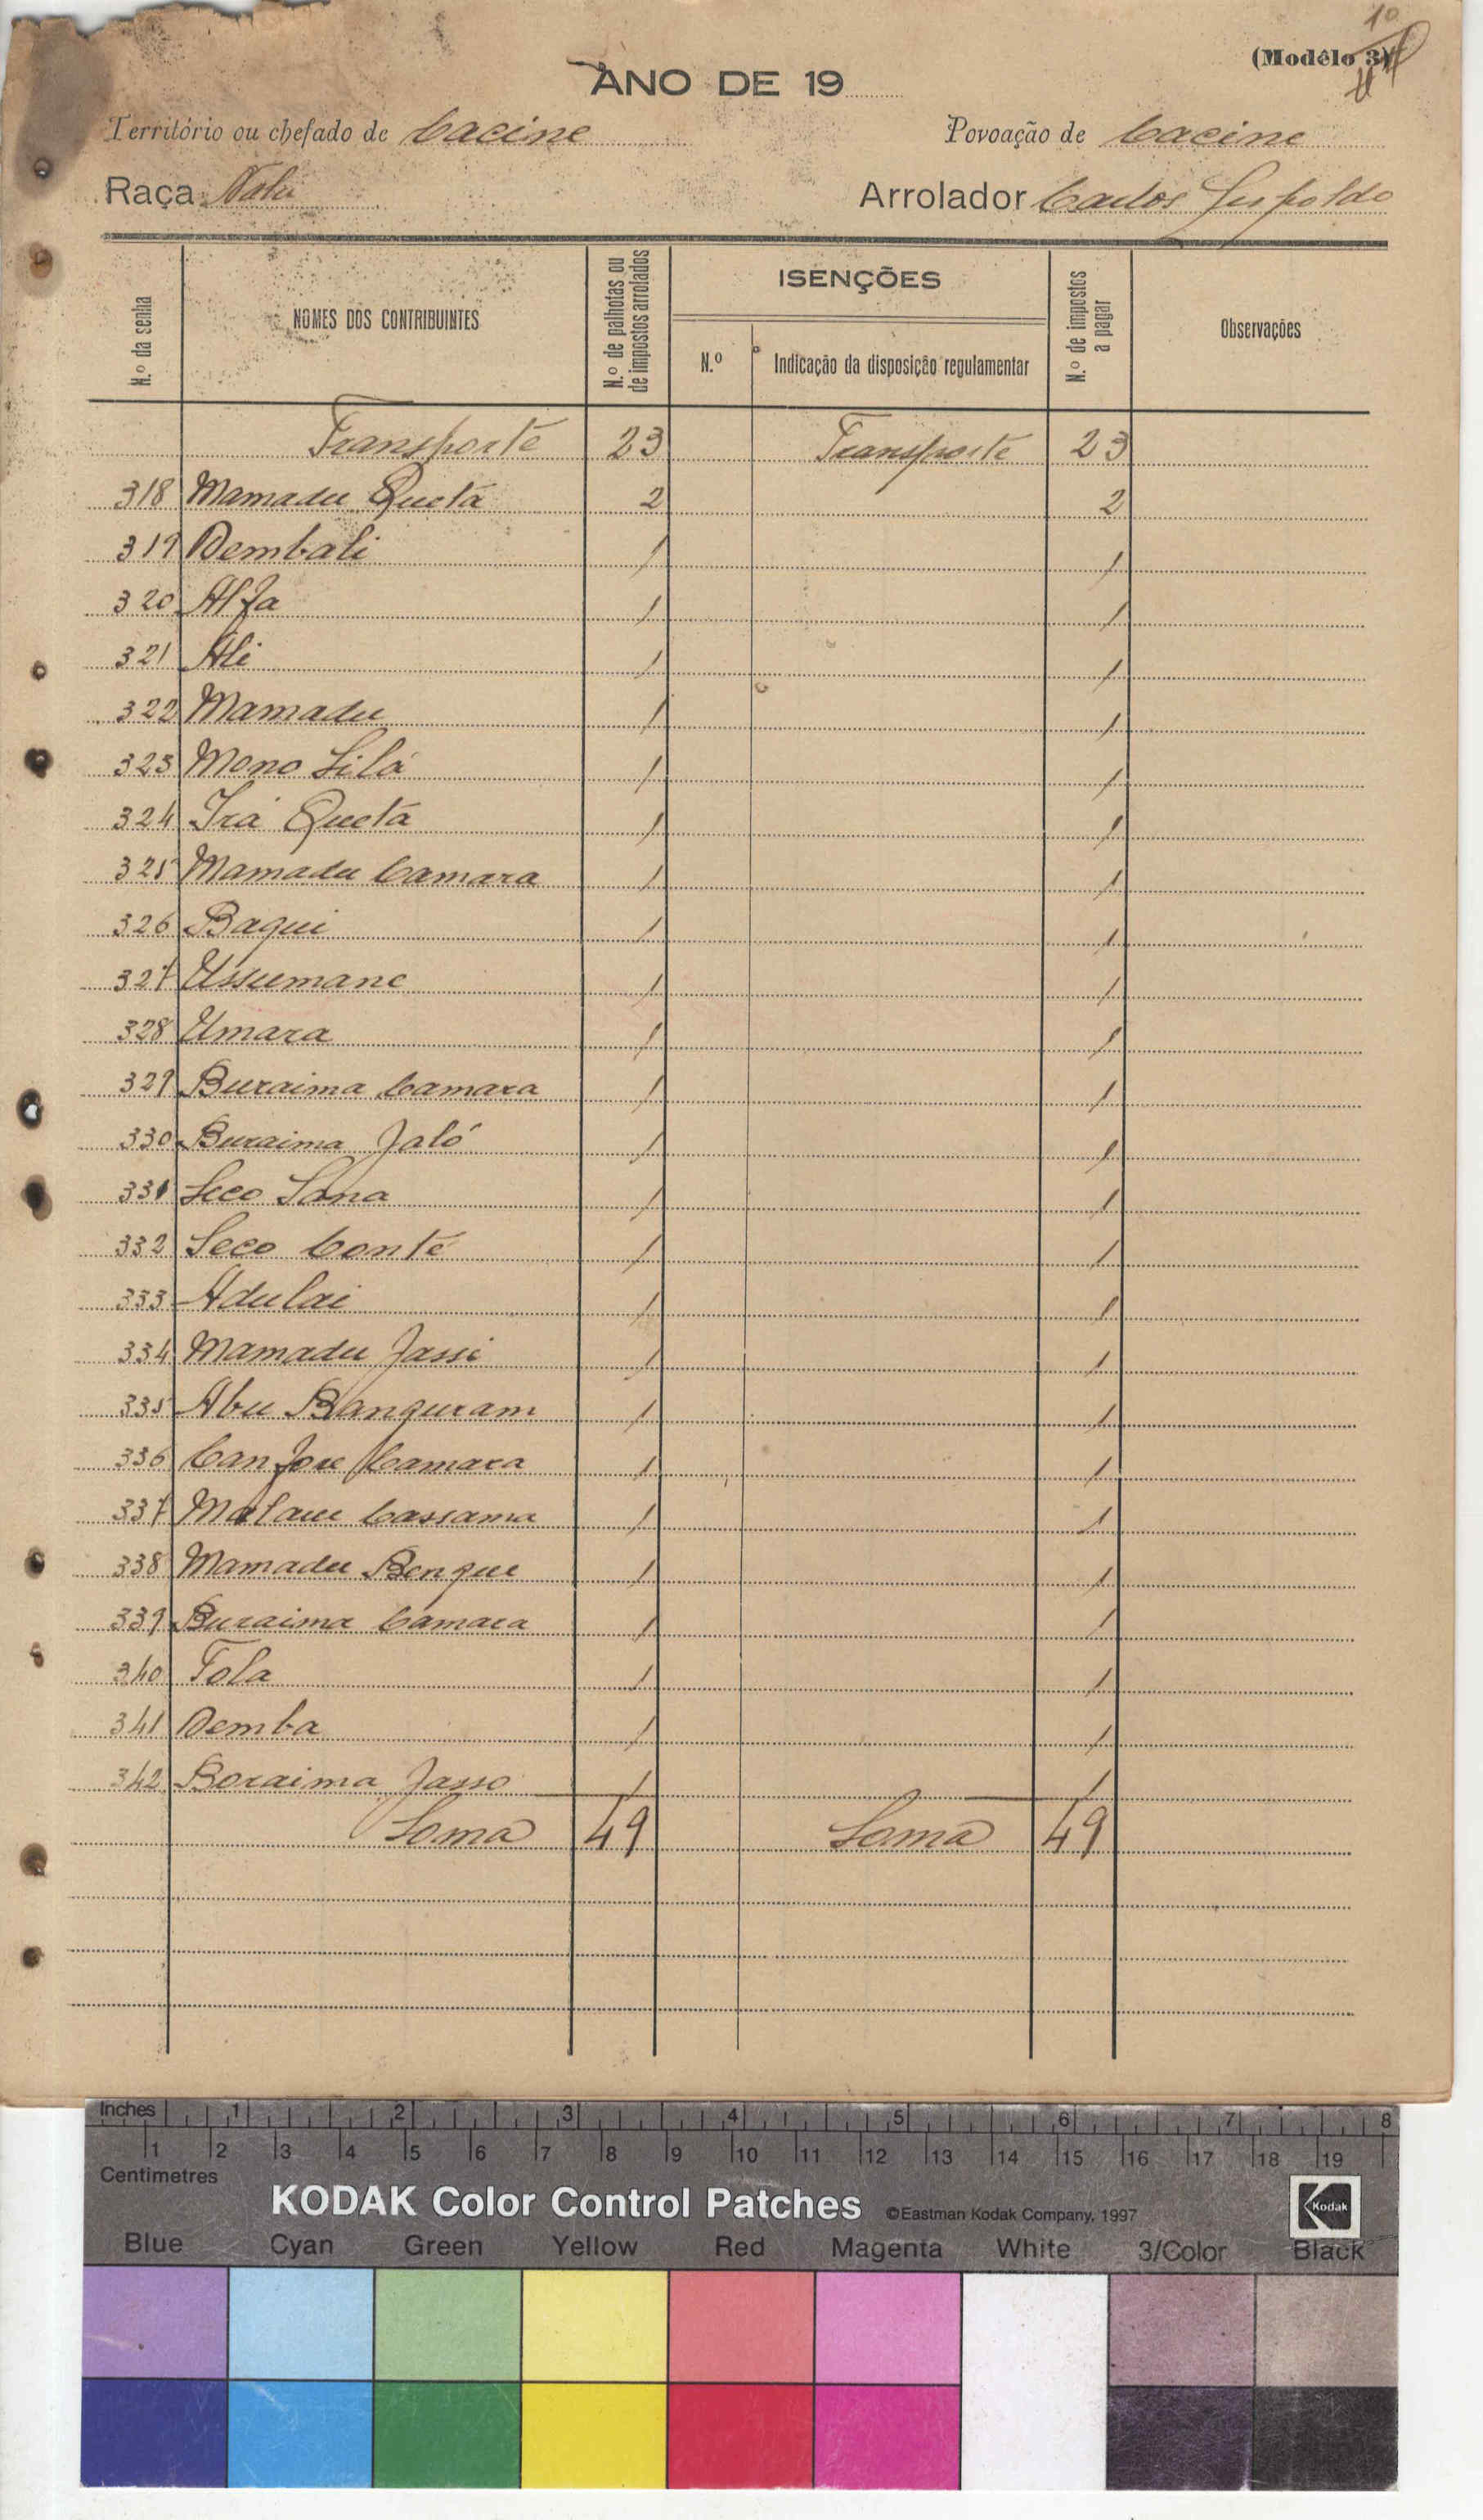 10
(Modêlo 3)
ANO DE 19
Território ou chefado de Cacine Povoação de Cacine
Raça Nalu Arrolador Carlos Leopoldo
N.º da senha NOMES DOS CONTRIBUINTES N.º de palhotas ou de impostos arrolados ISENÇÕES N.º de impostos a pagar Observações
N.º Indicação da disposição regulamentar
Transporte 23 Transporte 23
318 Mamadu Quetá 2 2
319 Dembali 1 1
320 Alfa 1 1
321 Ali 1 1
322 Mamadu 1 1
323 Mono Silá 1 1
324 Irá Quetá 1 1
325 Mamadu Camara 1 1
326 Baqui 1 1
327 Ussumane 1 1
328 Umara 1 1
329 Buraima Camara 1 1
330 Buraima Jaló 1 1
331 Seco Sana 1 1
332 Seco Conté 1 1
333 Adulai 1 1
334 Mamadu Jassi 1 1
335 Abu Banguram 1 1
336 Canfore Camara 1 1
337 Malau Cassama 1 1
338 Mamadu Bengue 1 1
339 Buraima Camara 1 1
340 Tola 1 1
341 Demba 1 1
342 Boraima Jasso 1 1
Soma 49 Soma 49
Inches 1 2 3 4 5 6 7 8
1 2 3 4 5 6 7 8 9 10 11 12 13 14 15 16 17 18 19
Centimetres
KODAK Color Control Patches ©Eastman Kodak Company, 1997 Kodak
Blue Cyan Green Yellow Red Magenta White 3/Color Black